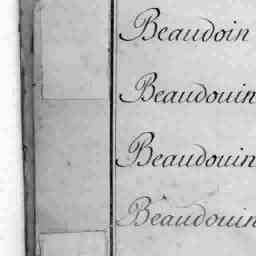 Beaudoin
Beaudouin
Beaudouin
Beaudouin